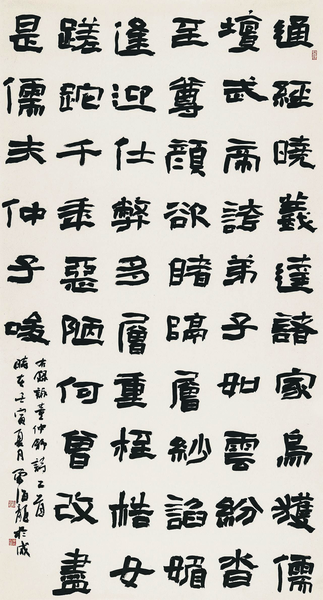 通經曉義達諸家烏獲儒
壇武帝誇弟子如雲紛沓
至尊顏欲睹隔層紗諂媚
逢迎仕弊多層重桎梏女
蹉跎千年惡陋何曾改盡
是儒夫仲子嗟
詠董仲舒詩一首
時在壬寅夏月